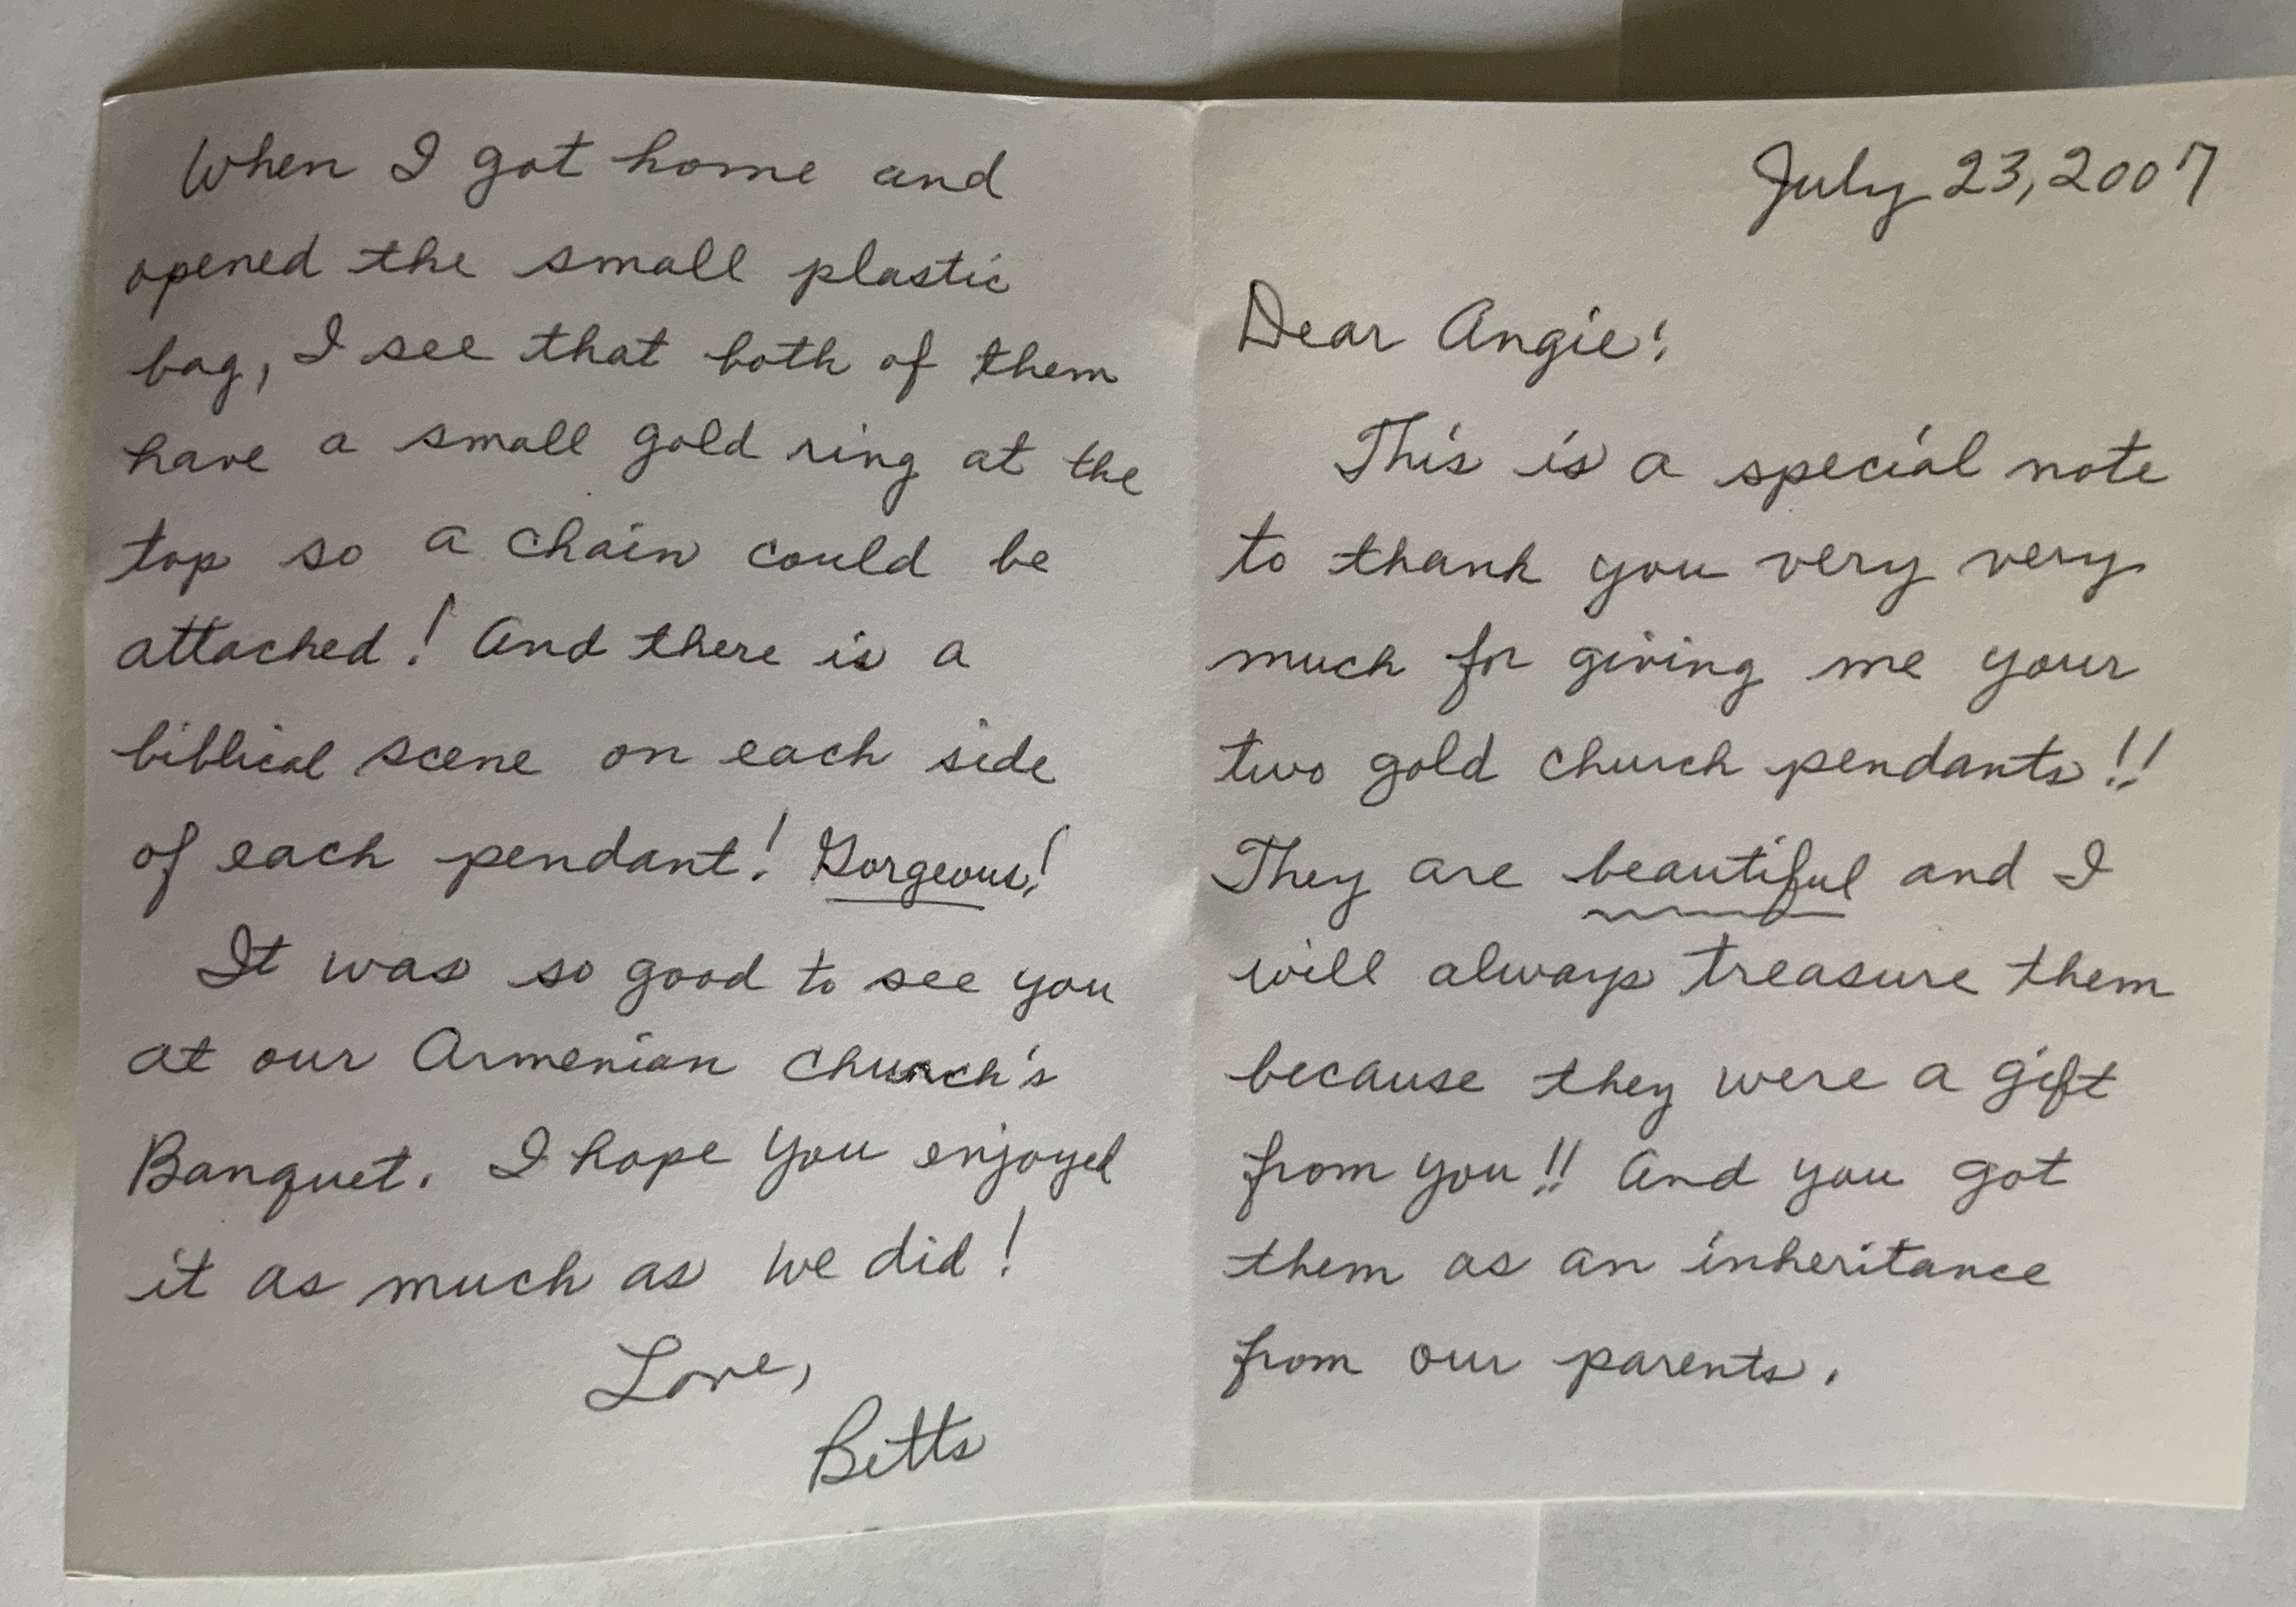 July 23, 2007
Dear Angie:
This is a special note
to thank you very very
much for giving me your
two gold church pendants!!
They are beautiful and I
will always treasure them
because they were a gift
from you!! And you got
them as an inheritance
from our parents.
When I got home and
opened the small plastic
bag, I see that both of them
have a small gold ring at the
top so a chain could be
attached! And there is a
biblical scene on each side
of each pendant! Gorgeous!
It was so good to see you
at our Armenian Church's
Banquet. I hope you enjoyed
it as much as we did!
Love,
Betts